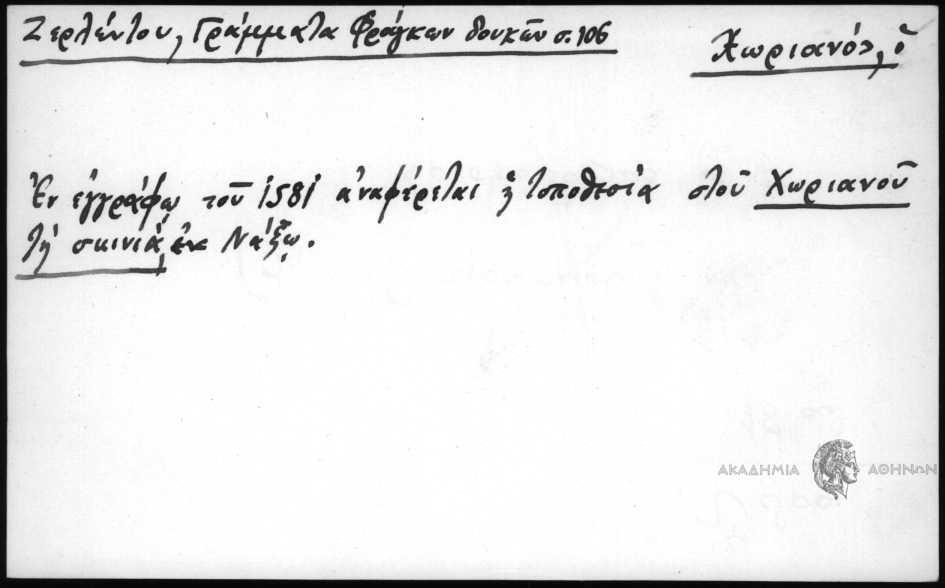 Ζερλέντου, Γράμματα Φράγκων δουκῶν σ. 106
Χωριανός, ὁ
Ἐν ἐγγράφῳ τοῦ 1581 ἀναφέρεται ἡ τοποθεσία στοῦ Χωριανοῦ
τὴ σκινιά, ἐν Νάξῳ.
ΑΚΑΔΗΜΙΑ ΑΘΗΝΩΝ